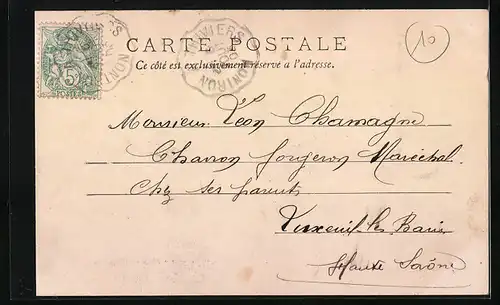 CARTE POSTALE
Ce côté est exclusivement réservé a l'adresse.
10
5
THIVIERS
NONTRON
Monsieur Léon Chamagne
Charron forgeron Maréchal
Chez ses parents
Luxeuil les Bains
Haute Saône